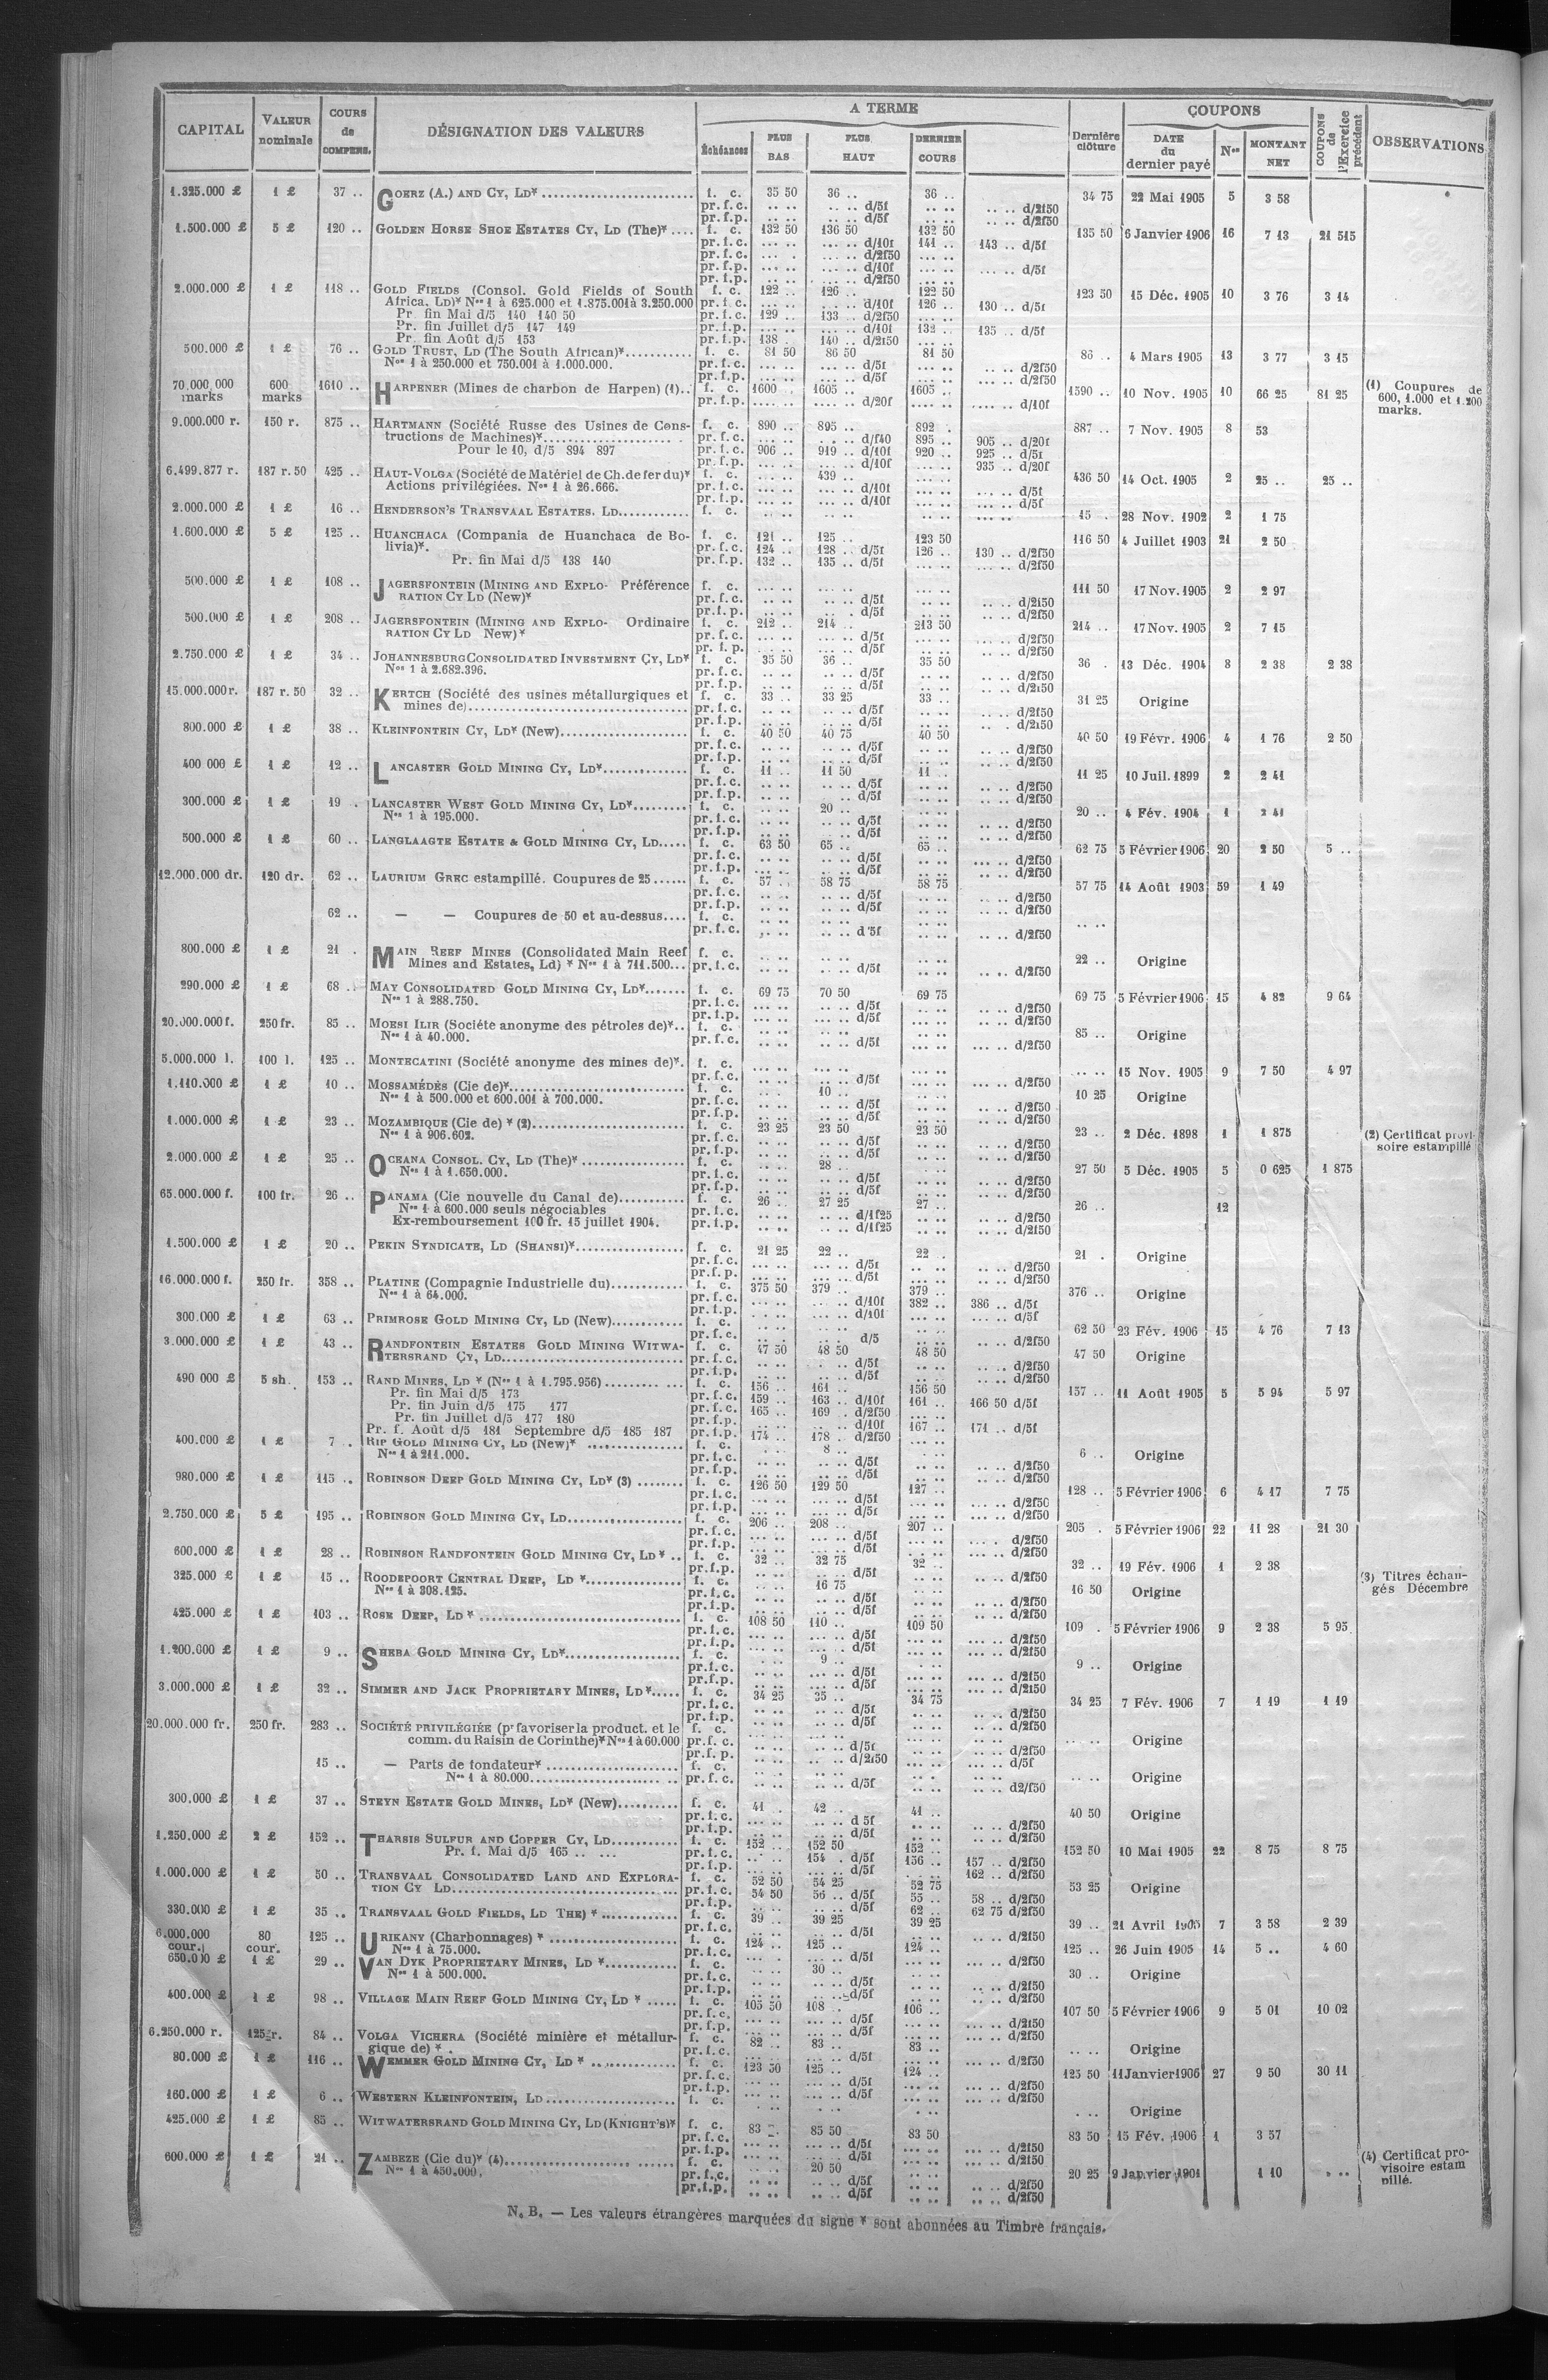 CAPITAL | VALEUR nominale | COURS de COMPENS. | DÉSIGNATION DES VALEURS | A TERME | Dernière clôture | COUPONS | COUPONS de l'Exercice précédent | OBSERVATIONS
Échéances | PLUS BAS | PLUS HAUT | DERNIER COURS | DATE du dernier payé | Nos | MONTANT NET
1.325.000 £ 1 £ 37 .. GOERZ (A.) AND CY, LD* f. c. 35 50 36 .. 36 .. 34 75 22 Mai 1905 5 3 58
pr. f. c. .. .. .. .. d/5f .. .. .. .. d/2f50
pr. f. p. .. .. .. .. d/5f .. .. .. .. d/2f50
1.500.000 £ 5 £ 120 .. GOLDEN HORSE SHOE ESTATES CY, LD (The)* .... f. c. 132 50 136 50 132 50 135 50 6 Janvier 1906 16 7 13 21 515
pr. f. c. d/10f 141 .. 143 .. d/5f
pr. f. c. d/2f50
pr. f. p. d/10f d/5f
pr. f. p. d/2f50
2.000.000 £ 1 £ 118 .. GOLD FIELDS (Consol. Gold Fields of South f. c. 122 .. 126 .. 122 50 123 50 15 Déc. 1905 10 3 76 3 14
Africa, LD)* Nos 1 à 625.000 et 1.875.001 à 3.250.000 pr. f. c. d/10f 126 .. 130 .. d/5f
Pr. fin Mai d/5 140 140 50 pr. f. c. 129 .. 133 .. d/2f50
Pr. fin Juillet d/5 147 149 pr. f. p. d/10f 132 .. 135 .. d/5f
Pr. fin Août d/5 153 pr. f. p. 138 . 140 .. d/2f50
500.000 £ 1 £ 76 .. GOLD TRUST, LD (The South African)* f. c. 81 50 86 50 81 50 86 .. 4 Mars 1905 13 3 77 3 15
Nos 1 à 250.000 et 750.001 à 1.000.000. pr. f. c. d/5f d/2f50
pr. f. p. d/5f d/2f50
70.000.000 marks 600 marks 1610 .. HARPENER (Mines de charbon de Harpen) (1).. f. c. 1600 . 1605 .. 1605 .. 1590 .. 10 Nov. 1905 10 66 25 81 25 (1) Coupures de 600, 1.000 et 1.200 marks.
pr. f. p. d/20f d/10f
9.000.000 r. 150 r. 875 .. HARTMANN (Société Russe des Usines de Cons- f. c. 890 .. 895 .. 892 . 887 .. 7 Nov. 1905 8 53
tructions de Machines)* pr. f. c. d/f40 895 .. 905 .. d/20f
Pour le 10, d/5 894 897 pr. f. c. 906 .. 919 .. d/10f 920 .. 925 .. d/5f
pr. f. p. d/10f 935 .. d/20f
6.499.877 r. 187 r. 50 425 .. HAUT-VOLGA (Société de Matériel de Ch. de fer du)* f. c. 439 .. 436 50 14 Oct. 1905 2 25 .. 25 ..
Actions privilégiées. Nos 1 à 26.666. pr. f. c. d/10f d/5f
pr. f. p. d/10f d/5f
2.000.000 £ 1 £ 16 .. HENDERSON'S TRANSVAAL ESTATES. LD f. c. 15 . 28 Nov. 1902 2 1 75
1.600.000 £ 5 £ 125 .. HUANCHACA (Compania de Huanchaca de Bo- f. c. 121 .. 125 .. 123 50 116 50 4 Juillet 1903 21 2 50
livia)*. pr. f. c. 124 .. 128 .. d/5f 126 .. 130 .. d/2f50
Pr. fin Mai d/5 138 140 pr. f. p. 132 .. 135 .. d/5f d/2f50
500.000 £ 1 £ 108 .. JAGERSFONTEIN (MINING AND EXPLO- Préférence f. c. 111 50 17 Nov. 1905 2 2 97
RATION CY LD (New)* pr. f. c. d/5f d/2f50
pr. f. p. d/5f d/2f50
500.000 £ 1 £ 208 .. JAGERSFONTEIN (MINING AND EXPLO- Ordinaire f. c. 212 .. 214 .. 213 50 214 .. 17 Nov. 1905 2 7 15
RATION CY LD New)* pr. f. c. d/5f d/2f50
pr. f. p. d/5f d/2f50
2.750.000 £ 1 £ 34 .. JOHANNESBURG CONSOLIDATED INVESTMENT CY, LD* f. c. 35 50 36 .. 35 50 36 . 13 Déc. 1904 8 2 38 2 38
Nos 1 à 2.682.396. pr. f. c. d/5f d/2f50
pr. f. p. d/5f d/2f50
15.000.000 r. 187 r. 50 32 .. KERTCH (Société des usines métallurgiques et f. c. 33 .. 33 25 33 .. 31 25 Origine
mines de) pr. f. c. d/5f d/2f50
pr. f. p. d/5f d/2f50
800.000 £ 1 £ 38 .. KLEINFONTEIN CY, LD* (New) f. c. 40 50 40 75 40 50 40 50 19 Févr. 1906 4 1 76 2 50
pr. f. c. d/5f d/2f50
pr. f. p. d/5f d/2f50
400 000 £ 1 £ 12 .. LANCASTER GOLD MINING CY, LD* f. c. 11 .. 11 50 11 .. 11 25 10 Juil. 1899 2 2 41
pr. f. c. d/5f d/2f50
pr. f. p. d/5f d/2f50
300.000 £ 1 £ 19 . LANCASTER WEST GOLD MINING CY, LD* f. c. 20 .. 20 .. 4 Fév. 1904 1 2 41
Nos 1 à 195.000. pr. f. c. d/5f d/2f50
pr. f. p. d/5f d/2f50
500.000 £ 1 £ 60 .. LANGLAAGTE ESTATE & GOLD MINING CY, LD f. c. 63 50 65 .. 65 .. 62 75 5 Février 1906 20 2 50 5 ..
pr. f. c. d/5f d/2f50
pr. f. p. d/5f d/2f50
12.000.000 dr. 120 dr. 62 .. LAURIUM GREC estampillé. Coupures de 25 f. c. 57 .. 58 75 58 75 57 75 14 Août 1903 59 1 49
pr. f. c. d/5f d/2f50
d/5f d/2f50
62 .. — — Coupures de 50 et au-dessus f. c. .. ..
pr. f. c. d 5f d/2f50
800.000 £ 1 £ 21 . MAIN REEF MINES (Consolidated Main Reef f. c. 22 .. Origine
Mines and Estates, Ld) * Nos 1 à 711.500 pr. f. c. d/5f d/2f50
290.000 £ 1 £ 68 .. MAY CONSOLIDATED GOLD MINING CY, LD* f. c. 69 75 70 50 69 75 69 75 5 Février 1906 15 4 82 9 64
Nos 1 à 288.750. pr. f. c. d/5f d/2f50
pr. f. p. d/5f d/2f50
20.000.000 f. 250 fr. 85 .. MOESI ILIR (Sociéte anonyme des pétroles de)* f. c. 85 .. Origine
Nos 1 à 40.000. pr. f. c. d/5f d/2f50
5.000.000 l. 100 l. 125 .. MONTECATINI (Société anonyme des mines de)*. f. c. 15 Nov. 1905 9 7 50 4 97
pr. f. c. d/5f d/2f50
1.110.000 £ 1 £ 10 .. MOSSAMÉDÈS (Cie de)* f. c. 10 .. 10 25 Origine
Nos 1 à 500.000 et 600.001 à 700.000. pr. f. c. d/5f d/2f50
pr. f. p. d/5f d/2f50
1.000.000 £ 1 £ 23 .. MOZAMBIQUE (Cie de) * (2) f. c. 23 25 23 50 23 50 23 .. 2 Déc. 1898 1 1 875 (2) Certificat provisoire estampillé
Nos 1 à 906.602. pr. f. c. d/5f d/2f50
pr. f. p. d/5f d/2f50
2.000.000 £ 1 £ 25 .. OCEANA CONSOL. CY, LD (The)* f. c. 28 .. 27 50 5 Déc. 1905 5 0 625 1 875
Nos 1 à 1.650.000. pr. f. c. d/5f d/2f50
pr. f. p. d/5f d/2f50
65.000.000 f. 100 fr. 26 .. PANAMA (Cie nouvelle du Canal de) f. c. 26 .. 27 25 27 .. 26 .. 12
Nos 1 à 600.000 seuls négociables pr. f. c. d/1f25 d/2f50
Ex-remboursement 100 fr. 15 juillet 1904. pr. f. p. d/1f25 d/2f50
1.500.000 £ 1 £ 20 .. PEKIN SYNDICATE, LD (SHANSI)* f. c. 21 25 22 .. 22 .. 21 . Origine
pr. f. c. d/5f d/2f50
pr. f. p. d/5f d/2f50
16.000.000 f. 250 fr. 358 .. PLATINE (Compagnie Industrielle du) f. c. 375 50 379 .. 379 .. 376 .. Origine
Nos 1 à 64.000. pr. f. c. d/10f 382 .. 386 .. d/5f
pr. f. p. d/10f d/5f
300.000 £ 1 £ 63 .. PRIMROSE GOLD MINING CY, LD (New) f. c. 62 50 23 Fév. 1906 15 4 76 7 13
pr. f. c. d/5 d/2f50
3.000.000 £ 1 £ 43 .. RANDFONTEIN ESTATES GOLD MINING WITWA- f. c. 47 50 48 50 48 50 47 50 Origine
TERSRAND CY, LD pr. f. c. d/5f d/2f50
pr. f. p. d/5f d/2f50
490 000 £ 5 sh. 153 .. RAND MINES, LD * (Nos 1 à 1.795.956) f. c. 156 .. 161 .. 156 50 157 .. 11 Août 1905 5 5 94 5 97
Pr. fin Mai d/5 173 pr. f. c. 159 .. 163 .. d/10f 161 .. 166 50 d/5f
Pr. fin Juin d/5 175 177 pr. f. c. 165 .. 169 .. d/2f50
Pr. fin Juillet d/5 177 180 pr. f. p. d/10f 167 .. 171 .. d/5f
Pr. f. Août d/5 181 Septembre d/5 185 187 pr. f. p. 174 .. 178 .. d/2f50
400.000 £ 1 £ 7 . RIP GOLD MINING CY, LD (New)* f. c. 8 .. 6 .. Origine
Nos 1 à 211.000. pr. f. c. d/5f d/2f50
pr. f. p. d/5f d/2f50
980.000 £ 1 £ 115 .. ROBINSON DEEP GOLD MINING CY, LD* (3) f. c. 126 50 129 50 127 .. 128 .. 5 Février 1906 6 4 17 7 75
pr. f. c. d/5f d/2f50
pr. f. p. d/5f d/2f50
2.750.000 £ 5 £ 195 .. ROBINSON GOLD MINING CY, LD f. c. 206 .. 208 .. 207 .. 205 . 5 Février 1906 22 11 28 21 30
pr. f. c. d/5f d/2f50
pr. f. p. d/5f d/2f50
600.000 £ 1 £ 28 .. ROBINSON RANDFONTEIN GOLD MINING CY, LD * .. f. c. 32 .. 32 75 32 .. 32 .. 19 Fév. 1906 1 2 38
pr. f. p. d/5f d/2f50
325.000 £ 1 £ 15 .. ROODEPOORT CENTRAL DEEP, LD * f. c. 16 75 16 50 Origine (3) Titres échangés Décembre
Nos 1 à 308.125. pr. f. c. d/5f d/2f50
pr. f. p. d/5f d/2f50
425.000 £ 1 £ 103 .. ROSE DEEP, LD * f. c. 108 50 110 .. 109 50 109 . 5 Février 1906 9 2 38 5 95
pr. f. c. d/5f d/2f50
pr. f. p. d/5f d/2f50
1.200.000 £ 1 £ 9 .. SHEBA GOLD MINING CY, LD* f. c. 9 .. 9 .. Origine
pr. f. c. d/5f d/2f50
pr. f. p. d/5f d/2f50
3.000.000 £ 1 £ 32 .. SIMMER AND JACK PROPRIETARY MINES, LD* f. c. 34 25 35 .. 34 75 34 25 7 Fév. 1906 7 1 19 1 19
pr. f. c. d/5f d/2f50
pr. f. p. d/5f d/2f50
20.000.000 fr. 250 fr. 283 .. SOCIÉTÉ PRIVILÉGIÉE (pr favoriser la product. et le f. c. Origine
comm. du Raisin de Corinthe)* Nos 1 à 60.000 pr. f. c. d/5f d/2f50
pr. f. p. d/2f50 d/5f
15 .. — Parts de fondateur* f. c. Origine
Nos 1 à 80.000 pr. f. c. d/5f d2/f50
300.000 £ 1 £ 37 .. STEYN ESTATE GOLD MINES, LD* (New) f. c. 41 .. 42 .. 41 .. 40 50 Origine
pr. f. c. d 5f d/2f50
pr. f. p. d/5f d/2f50
1.250.000 £ 2 £ 152 .. THARSIS SULFUR AND COPPER CY, LD f. c. 152 .. 152 50 152 .. 152 50 10 Mai 1905 22 8 75 8 75
Pr. f. Mai d/5 165 .. ... pr. f. c. 154 . d/5f 156 .. 157 .. d/2f50
pr. f. p. d/5f 162 .. d/2f50
1.000.000 £ 1 £ 50 .. TRANSVAAL CONSOLIDATED LAND AND EXPLORA- f. c. 52 50 54 25 52 75 53 25 Origine
TION CY LD pr. f. c. 54 50 56 .. d/5f 55 .. 58 .. d/2f50
pr. f. p. d/5f 62 .. 62 75 d/2f50
330.000 £ 1 £ 35 .. TRANSVAAL GOLD FIELDS, LD THE) * f. c. 39 .. 39 25 39 25 39 .. 21 Avril 1905 7 3 58 2 39
pr. f. c. d/5f d/2f50
6.000.000 cour. 80 cour. 125 .. URIKANY (Charbonnages) * f. c. 124 .. 125 .. 124 .. 125 .. 26 Juin 1905 14 5 .. 4 60
Nos 1 à 75.000. pr. f. c. d/5f d/2f50
650.000 £ 1 £ 29 .. VAN DYK PROPRIETARY MINES, LD * f. c. 30 .. 30 .. Origine
Nos 1 à 500.000. pr. f. c. d/5f d/2f50
pr. f. p. d/5f d/2f50
400.000 £ 1 £ 98 .. VILLAGE MAIN REEF GOLD MINING CY, LD * f. c. 105 50 108 . 106 .. 107 50 5 Février 1906 9 5 01 10 02
pr. f. c. d/5f d/2f50
pr. f. p. d/5f d/2f50
6.250.000 r. 125 r. 84 .. VOLGA VICHERA (Société minière et métallur- f. c. 82 .. 83 .. 83 .. Origine
gique de) * . pr. f. c. d/5f d/2f50
80.000 £ 1 £ 116 .. WEMMER GOLD MINING CY, LD * f. c. 123 50 125 .. 124 .. 125 50 11 Janvier 1906 27 9 50 30 11
pr. f. c. d/5f d/2f50
pr. f. p. d/5f d/2f50
160.000 £ 1 £ 6 .. WESTERN KLEINFONTEIN, LD f. c. Origine
425.000 £ 1 £ 85 .. WITWATERSRAND GOLD MINING CY, LD (KNIGHT'S)* f. c. 83 .. 85 50 83 50 83 50 15 Fév. 1906 1 3 57
pr. f. c. d/5f d/2f50
pr. f. p. d/5f d/2f50
600.000 £ 1 £ 21 .. ZAMBEZE (Cie du)* (4) f. c. 20 50 20 25 9 Janvier 1901 1 10 (4) Certificat provisoire estam pillé.
Nos 1 à 450.000. pr. f. c. d/5f d/2f50
pr. f. p. d/5f d/2f50
N. B. — Les valeurs étrangères marquées du signe * sont abonnées au Timbre français.